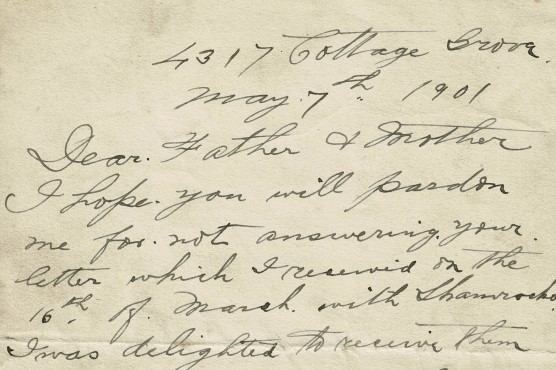 4317 Cottage Grove.
May. 7th 1901
Dear. Father & Mother
I hope. you will pardon
me for. not answering. your.
letter which I received on the
16th of. March. with Shamrocks.
I was delighted to receive them